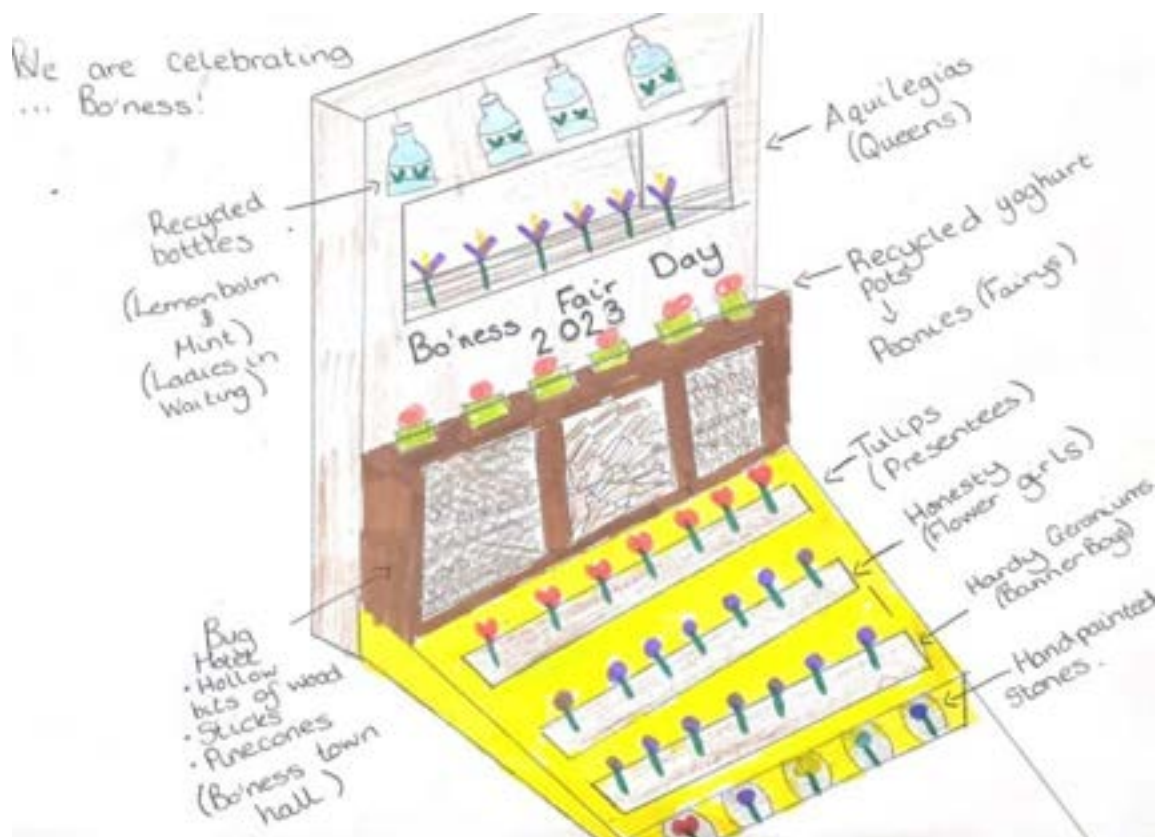 We are celebrating
... Bo'ness!
Recycled
bottles
(Lemonbalm
&
Mint)
(Ladies in
Waiting)
Aquilegias
(Queens)
Recycled yoghurt
pots
Peonies (Fairys)
Bo'ness Fair Day
2023
Tulips
(Presentees)
Honesty
(Flower girls)
Hardy Geraniums
(Banner Boys)
Handpainted
Stones.
Bug
Hotel
• Hollow
bits of wood
• Sticks
• Pinecones
(Bo'ness town
hall)